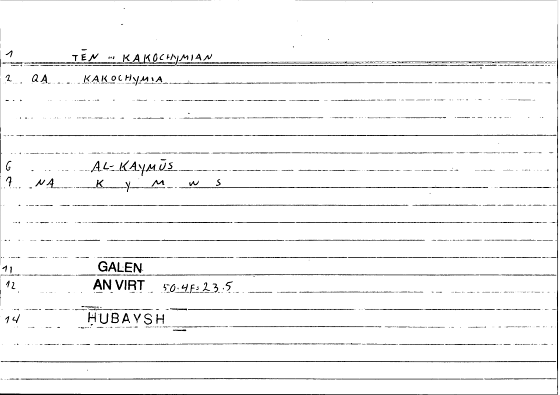 1 TĒN ~ KAKOCHYMIAN
2 QA KAKOCHYMIA
6 AL-KAYMŪS
7 NA K Y M W S
11 GALEN
12 AN VIRT 50.4F:23.5
14 ḤUBAYSH